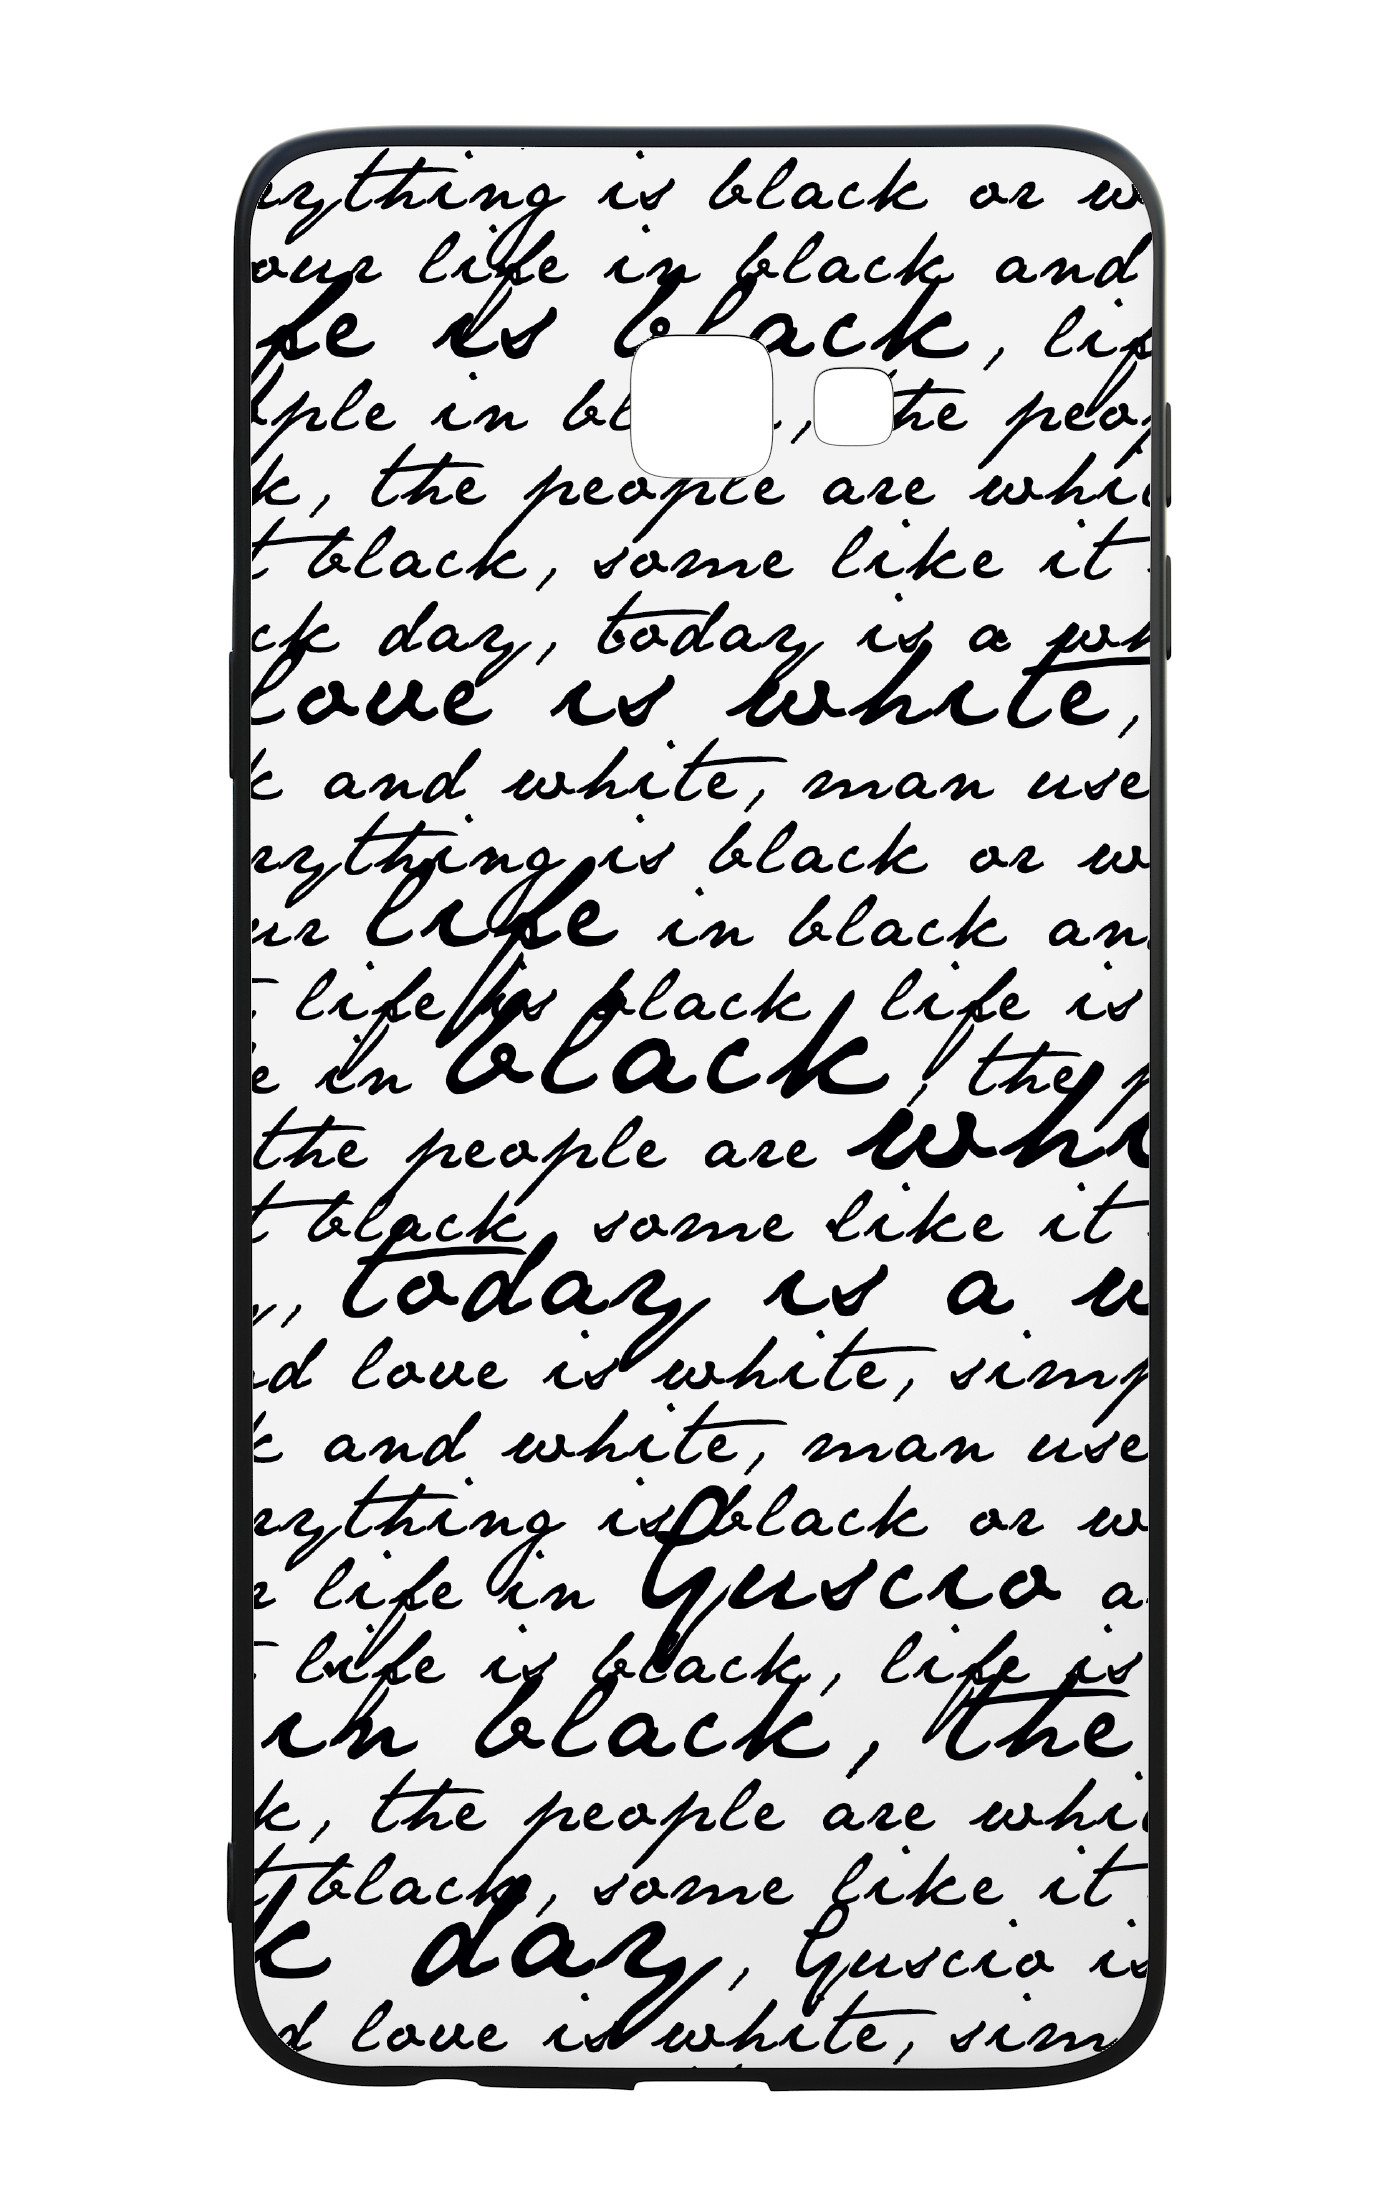 rything is black or w
our life in black and
fe is black, lif
ople in bl , the peop
k, the people are whi
t black, some like it
ck day, today is a wh
love is white,
k and white, man use
rything is black or w
ur life in black an
life is black, life is
e in black, the p
the people are whi
t black, some like it
, today is a w
d love is white, simp
k and white, man use
rything is black or w
r life in Guscio a
life is black, life is
in black, the
k, the people are whi
t black, some like it
k day, Guscio is
d love is white, sim